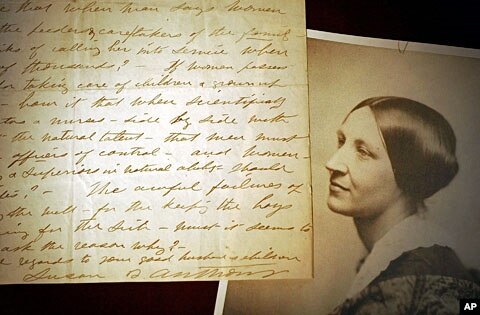 that when man says women
the feeders & caretakers of the family
of calling her into service when
of thousands? - If women possess
for taking care of children & grown up
- how is it that when scientifically
nurses - side by side with
- the natural talent - that men must
officers of control - and women -
& superiors in natural ability should
? - The awful failures of
the well - for the keeping the boys
for the sick - must it seems to
ask the reason why? -
regards to your good husband & children
Susan B Anthony
AP